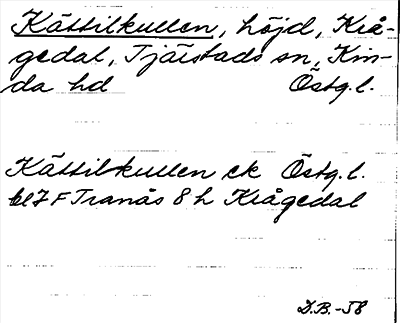 Kättilkullen, höjd, Krå-
gedal, Tjärstads sn, Kin-
da hd Östg.l.
Kättilkullen ek Östg.l.
bl 7 F Tranås 8 h Krågedal
D.B.-58